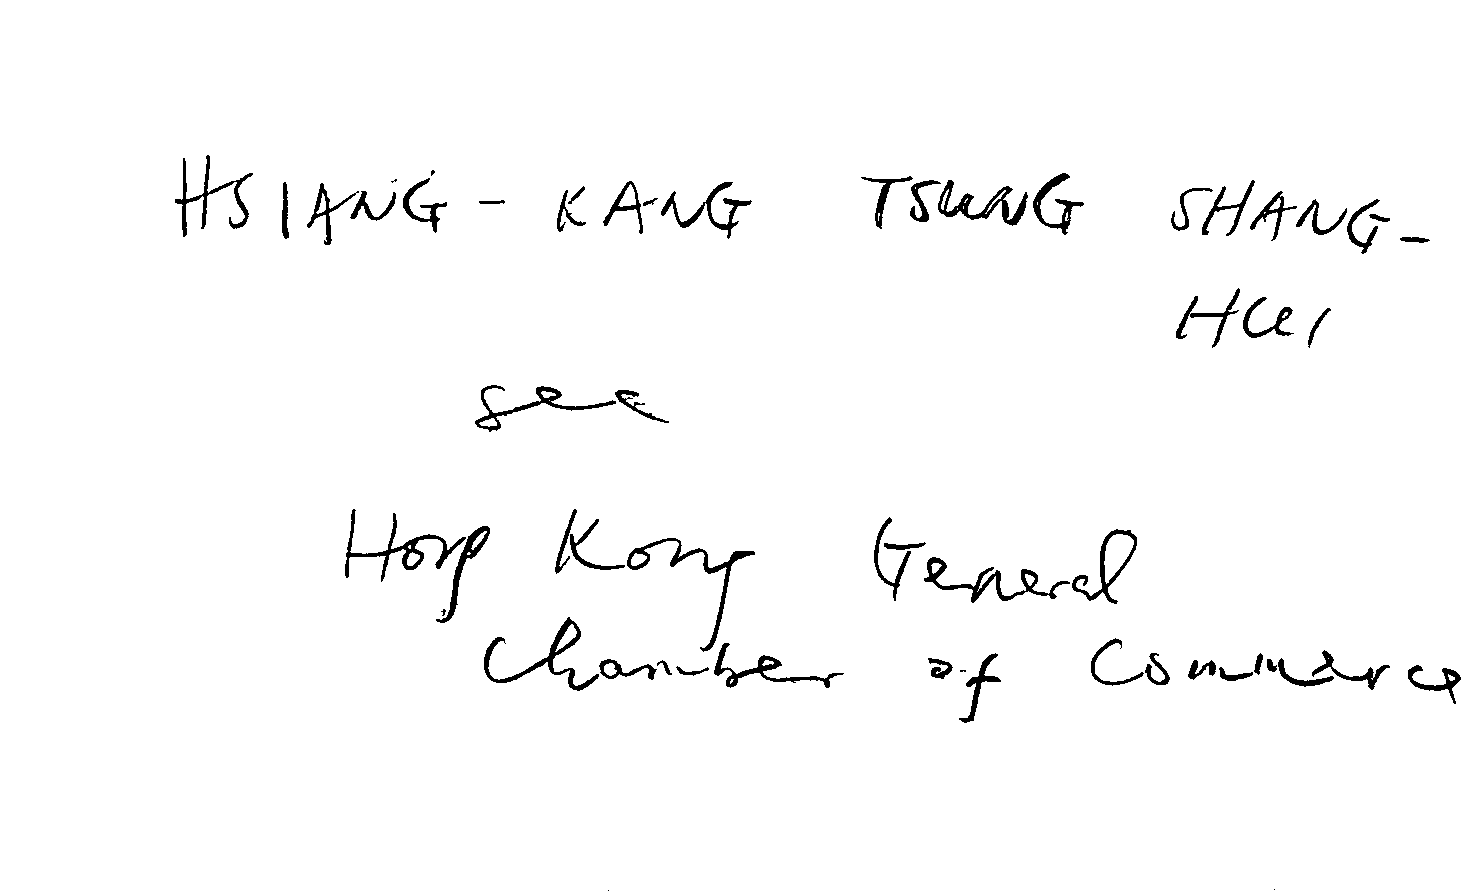 HSIANG-KANG TSUNG SHANG-
HUI
see
Hong Kong General
Chamber of Commerce